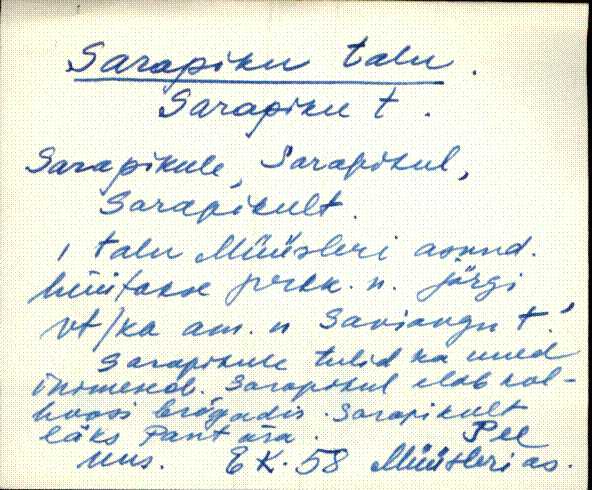 Sarapiku talu.
Sarapiku t.
Sarapikule, Sarapikul,
Sarapikult.
1 talu Müüsleri asund.
hüütakse perek. n. järgi
vt/ka am. n Saviaugu t.
Sarapikule tulid ka uued
inimesed. Sarapikul elab kol-
hoosi brigadir. Sarapikult
läks Pant ära. Pee
uus. EK. 58 Müüsleri as.